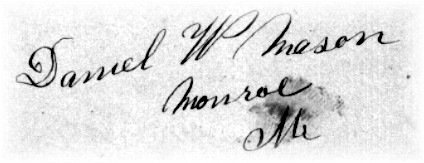 Daniel W Mason
Monroe
Me